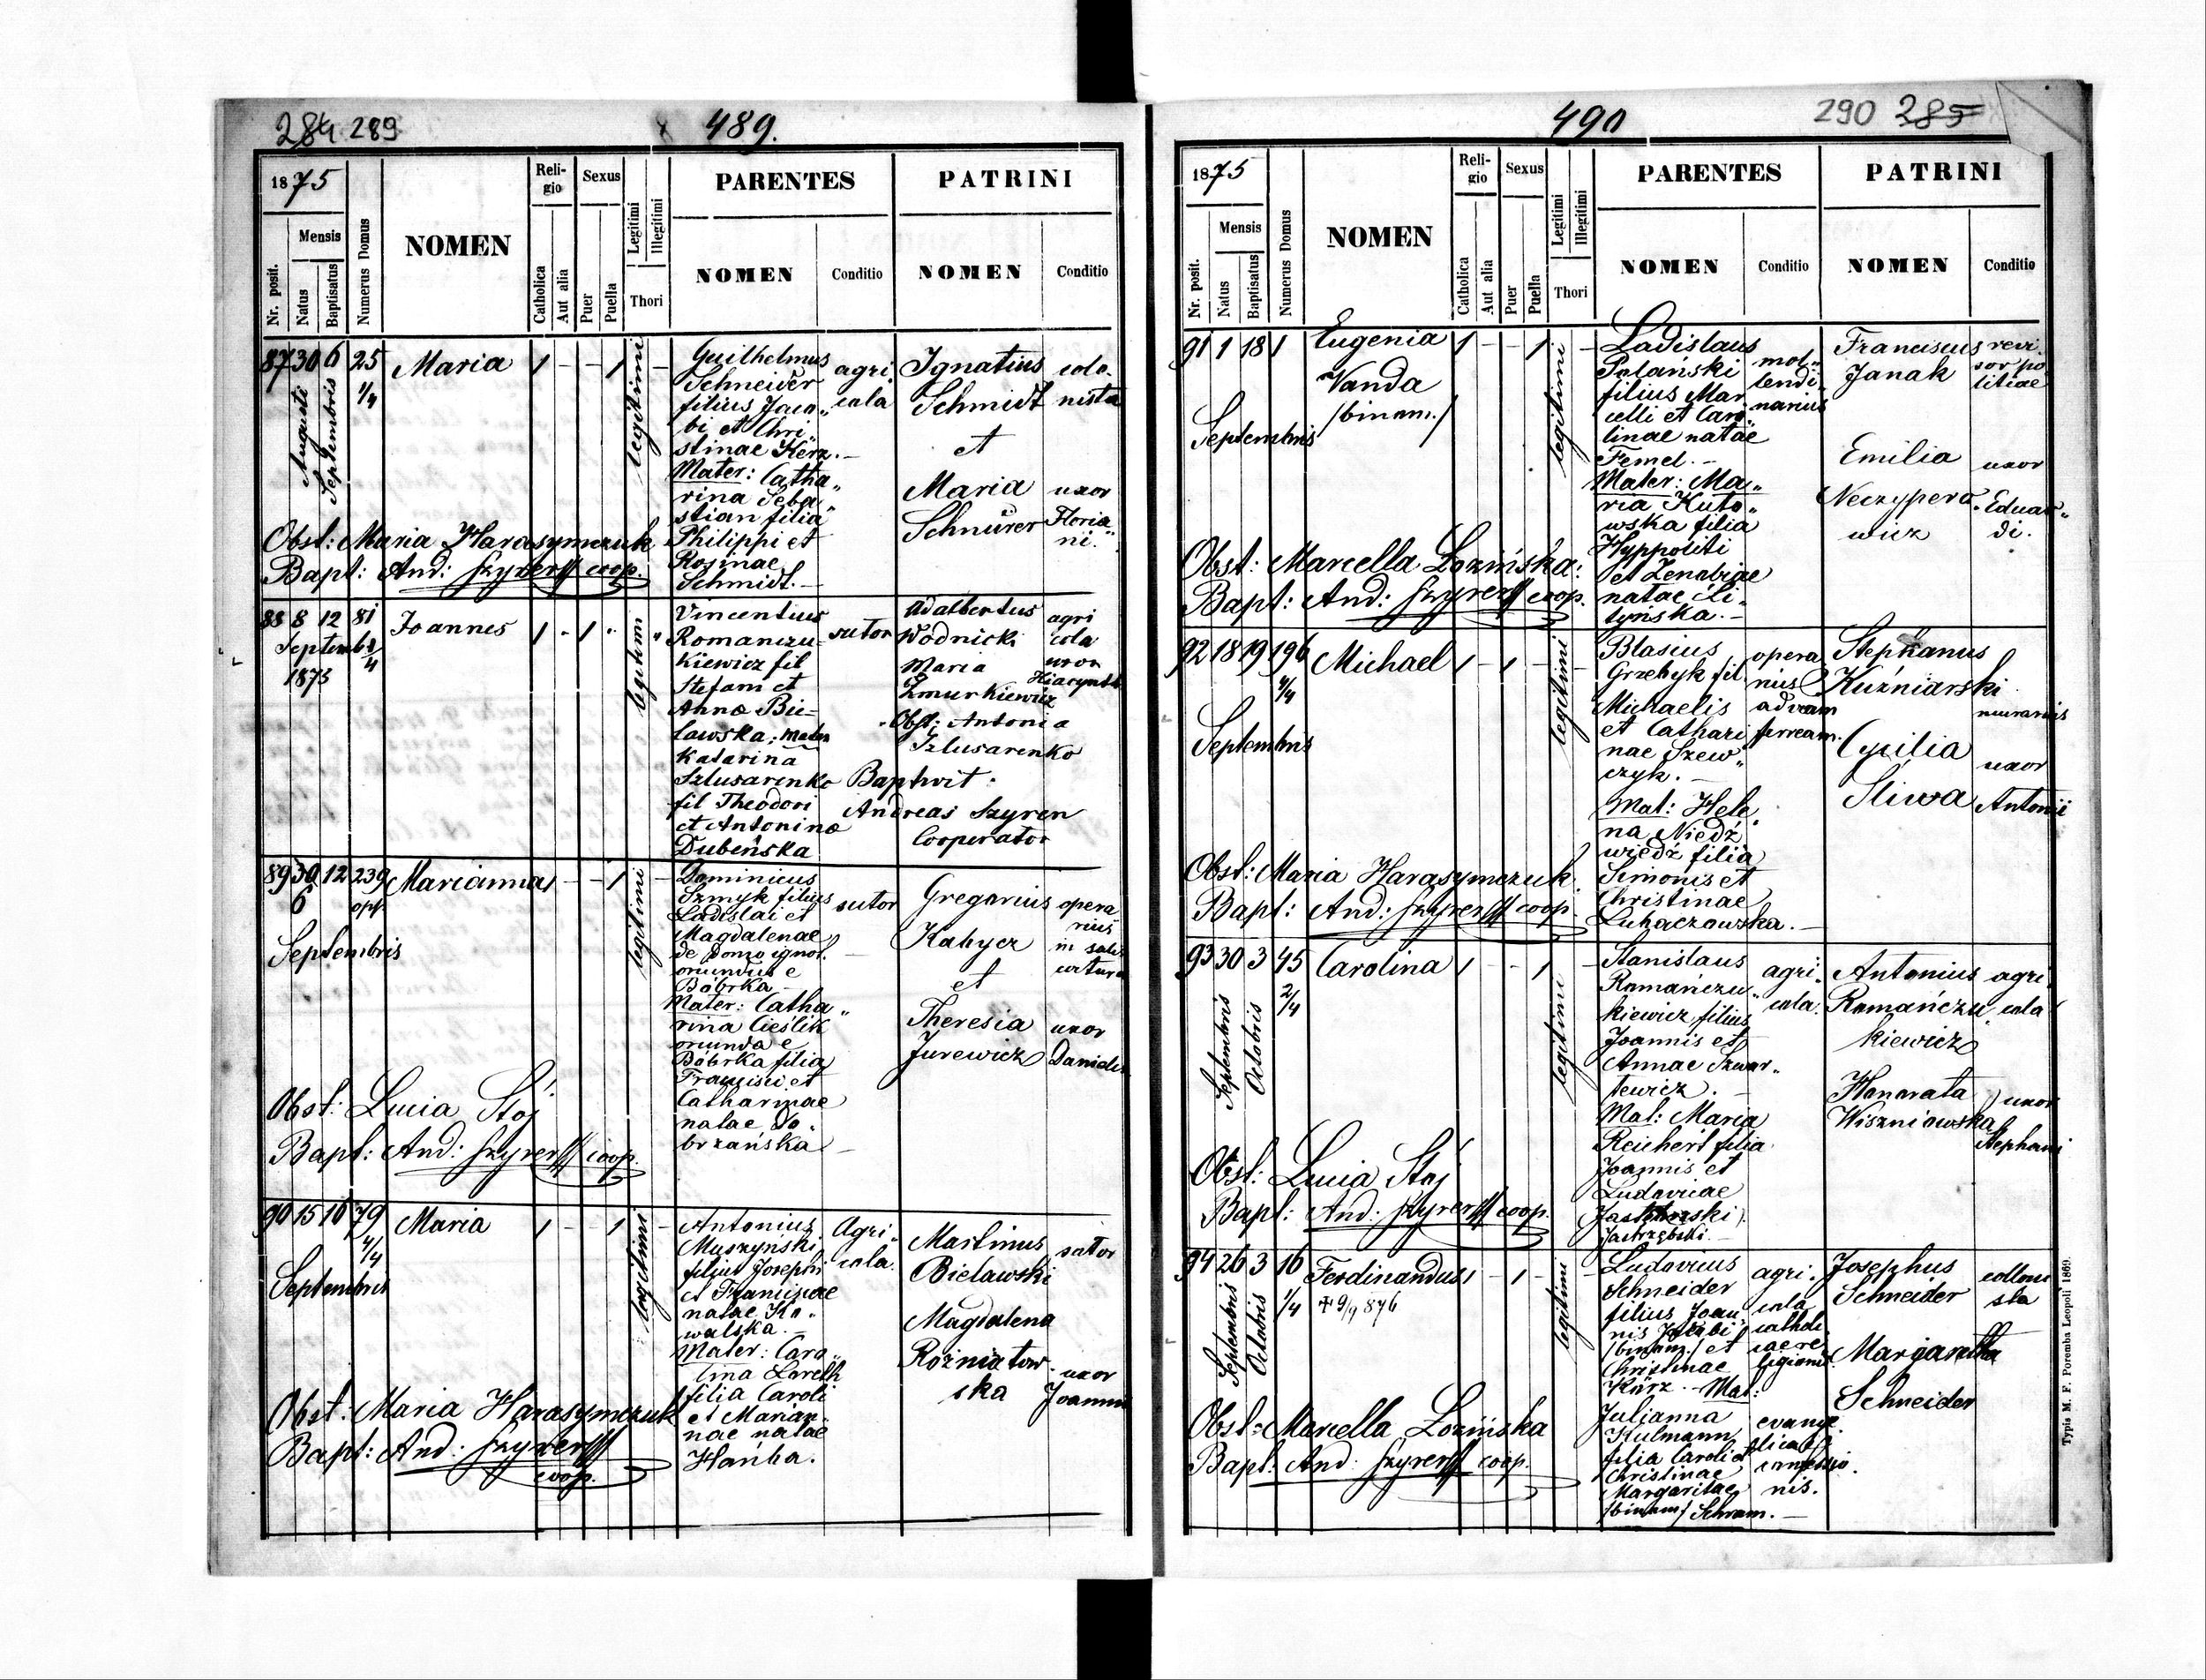 284 289
489.
1875
Nr. posit.
Mensis
Natus
Baptisatus
Numerus Domus
NOMEN
Religio
Catholica
Aut alia
Sexus
Puer
Puella
Legitimi
Illegitimi
Thori
PARENTES
NOMEN
Conditio
PATRINI
NOMEN
Conditio
87 30 6 25 1/4
Augusti
Septembris
Maria
1 - - 1
legitimi
Guilhelmus
Schneider
filius Jaco„
bi et Chri„
stinae Kerz.-
Mater: Catha„
rina Seba„
stian filia
Philippi et
Rosinae
Schmidt.-
agri„
cola
Ignatius
Schmidt
et
Maria
Schnürer
colo-
nista
uxor
Floria„
ni.
Obst: Maria Harasymczuk
Bapt: And: Szyrer coop.
88 8 12 81
Septemb
1875
Joannes
1 - 1 "
legitimi
Vincentius
Romanczu-
kiewicz fil
Stefani et
Anna Bie-
lawska; Mater
Katarina
Szlusarenko
fil Theodori
et Antonina
Dubeńska
sutor
Adalbertus
Wodnicki
Maria
Zmurkiewicz
agri
cola
uxor
Hiacynth
Obst: Antonia
Szlusarenko
Baptivit:
Andreas Szyren
Cooperator
89 30 12 239
6
opp.
Septembris
Marianna
1 - - 1
legitimi
Dominicus
Szmyk filius
Ladislai et
Magdalenae
de Domo ignot.
oriundus e
Bóbrka -
Mater: Catha„
rina Cieślik
oriunda e
Bóbrka filia
Francisci et
Catharinae
natae Do„
brzańska
sutor
Gregorius
Kabycz
et
Theresia
Jurewicz
opera
rius
in
uxor
Danieli
Obst: Lucia Stoj
Bapt: And: Szyrer coop.
90 15 16 79 4/4
Septembris
Maria
1 - 1
legitimi
Antonius
Muszyński
filius Josephi
et Franciscae
natae Ko„
walska.-
Mater: Caro„
lina Loreth
filia Caroli
et Marian„
nae natae
Hańba.
Agri„
cola.
Martinus
Bielawski
Magdalena
Rozniatow„
ska
sutor
uxor
Joannis
Obst: Maria Harasymczuk
Bapt: And: Szyrer
coop.
490
290 285
1875
Nr. posit.
Mensis
Natus
Baptisatus
Numerus Domus
NOMEN
Religio
Catholica
Aut alia
Sexus
Puer
Puella
Legitimi
Illegitimi
Thori
PARENTES
NOMEN
Conditio
PATRINI
NOMEN
Conditio
91 1 18 1
Septembris
Eugenia
Vanda
/binom./
1 - - 1
legitimi
Ladislaus
Polański
filius Mar„
celli et Caro„
linae natae
Femel.-
Mater: Ma„
ria Kuto„
wska filia
Hyppoliti
et Zenobiae
natae Oli„
tyńska.-
mol„
lendi„
narius
Franciscus
Janak
Emilia
Neczypero„
wicz
revi
sor po
litiae
uxor
Eduar„
di.
Obst: Marcella Łozińska.
Bapt: And: Szyrer coop.
92 18 19 196 4/4
Septembris
Michael
1 - 1 -
legitimi
Blasius
Grzebyk fil
Michaelis
et Cathari
nae Szew„
czyk.-
Mat: Hele„
na Niedź„
wiedź filia
Simonis et
Christinae
Luhaczowska.-
opera
rius
ad viam
ferream.
Stephanus
Kuźniarski
Cycilia
Sliwa
murarius
uxor
Antonii
Obst: Maria Harasymczuk
Bapt: And: Szyrer coop.
93 30 3 45 2/4
Septembris
Octobris
Carolina
1 - - 1
legitimi
Stanislaus
Romańczu„
kiewicz filius
Joannis et
Annae Szwar„
tewicz.-
Mat: Maria
Reichert filia
Joannis et
Ludovicae
Jastrzębski.-
agri„
cola.
Antonius
Romańczu„
kiewicz
Honorata
Wiszniowska
agri„
cola
uxor
Stephani
Obst: Lucia Stoj
Bapt: And: Szyrer coop.
94 26 3 16 1/4
Septembris
Octobris
Ferdinandus
+ 9/9 876
1 - 1 -
legitimi
Ludovicus
Schneider
filius Joan„
nis Jacobi
/binom./ et
Christinae
Kärz.- Mat:
Julianna
Kulmann
filia Caroli et
Christinae
Margaritae
/binom/ Schram.-
agri„
cola
catholi„
cae re„
ligionis
evange„
licae
confessio„
nis.
Josephus
Schneider
Margaretha
Schneider
colloni
sta
Obst: Marcella Łozińska
Bapt: And: Szyrer coop.
Typis M. F. Poremba Leopoli 1869.